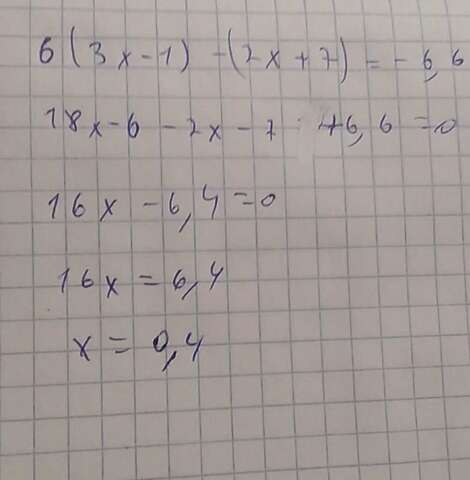 6(3x-1)-(2x+7)=-6,6
18x-6-2x-7+6,6=0
16x-6,4=0
16x=6,4
x=0,4